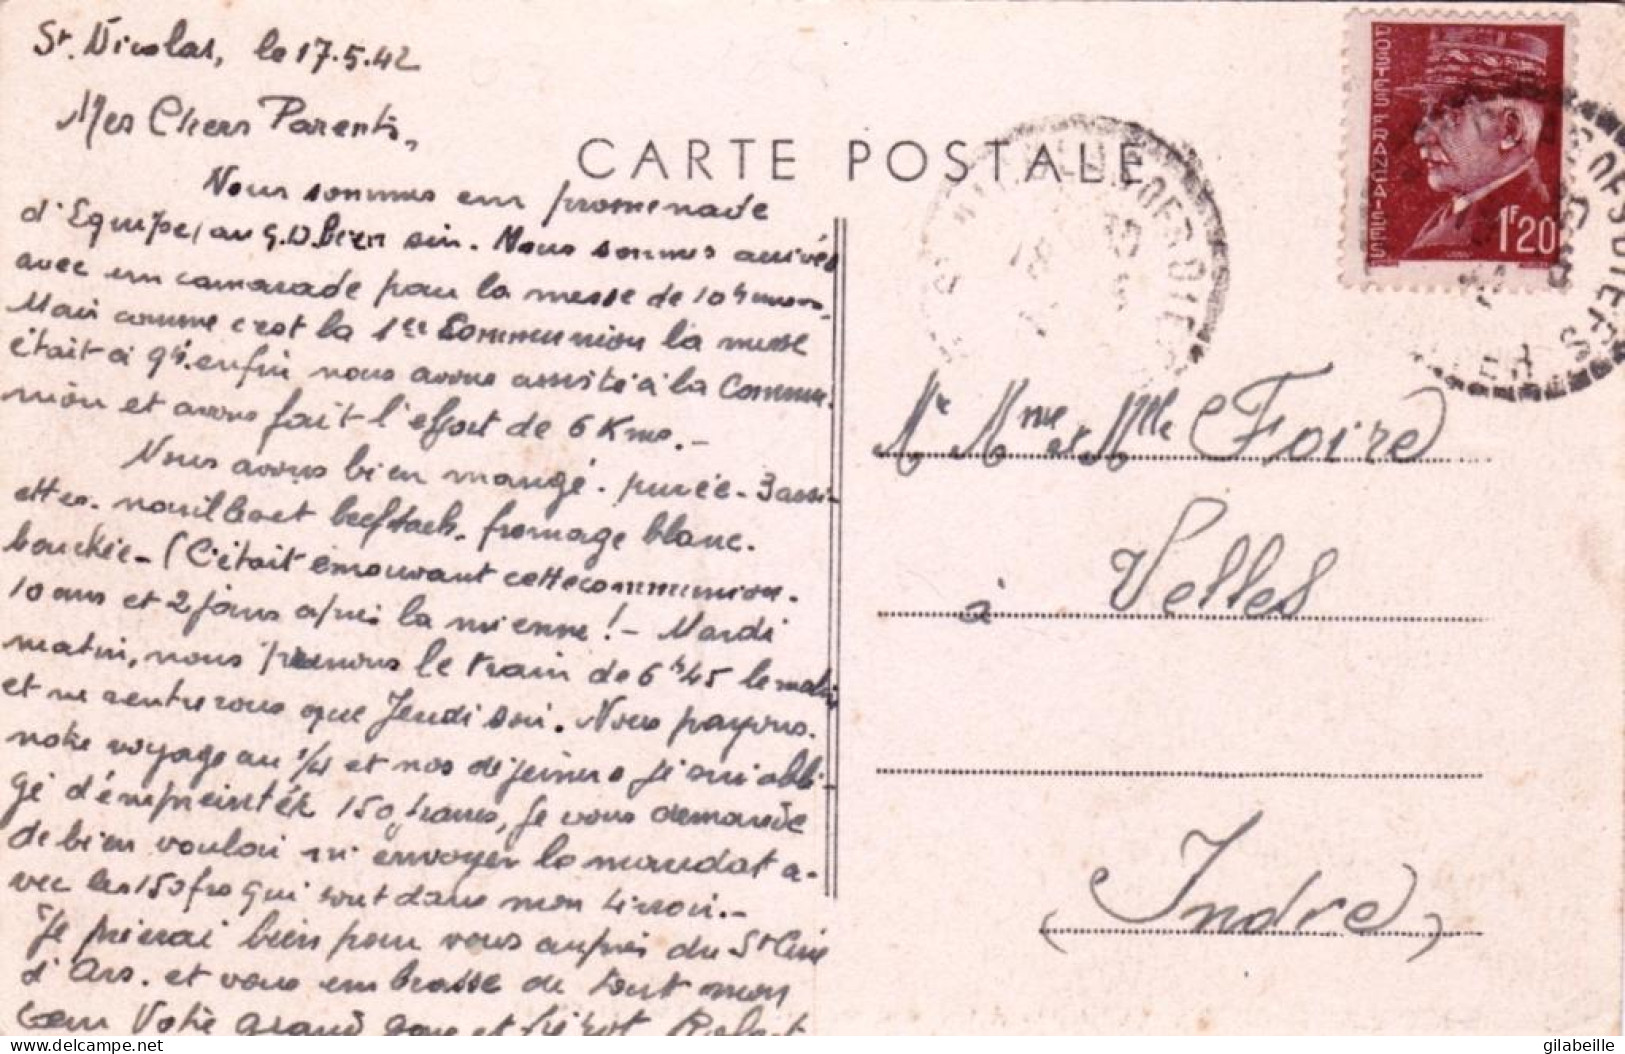 St. Nicolas, le 17.5.42
Mes Chers Parents,
Nous sommes en promenade
d'Equipe, au G.D. bien sûr. Nous sommes arrivés
avec un camarade pour la messe de 10h
Mais comme c'est la 1ère Communion la messe
était à 9h. enfin nous avons assisté à la Commu-
nion et avons fait l'effort de 6 Kms. -
Nous avons bien mangé. purée - 3 assi-
ettes. nouilles et beefsteack. fromage blanc.
(C'était émouvant cette communion.
10 ans et 2 jours après la mienne! - Mardi
matin, nous prenons le train de 6h45 le matin
et ne rentrerons que Jeudi soir. Nous payons
notre voyage au 1/4 et nos déjeuners je suis obli-
gé d'empreinter 150 francs, je vous demande
de bien vouloir m'envoyer le mandat a-
vec les 150 frs qui sont dans mon tiroir. -
Je prierai bien pour vous auprès du St Curé
d'Ars. et vous embrasse de tout mon
cœur Votre grand gars et
CARTE POSTALE
POSTES FRANÇAISES
1F20
Mr Mme et Mlle Foire
à Velles
(Indre)
gilabeille